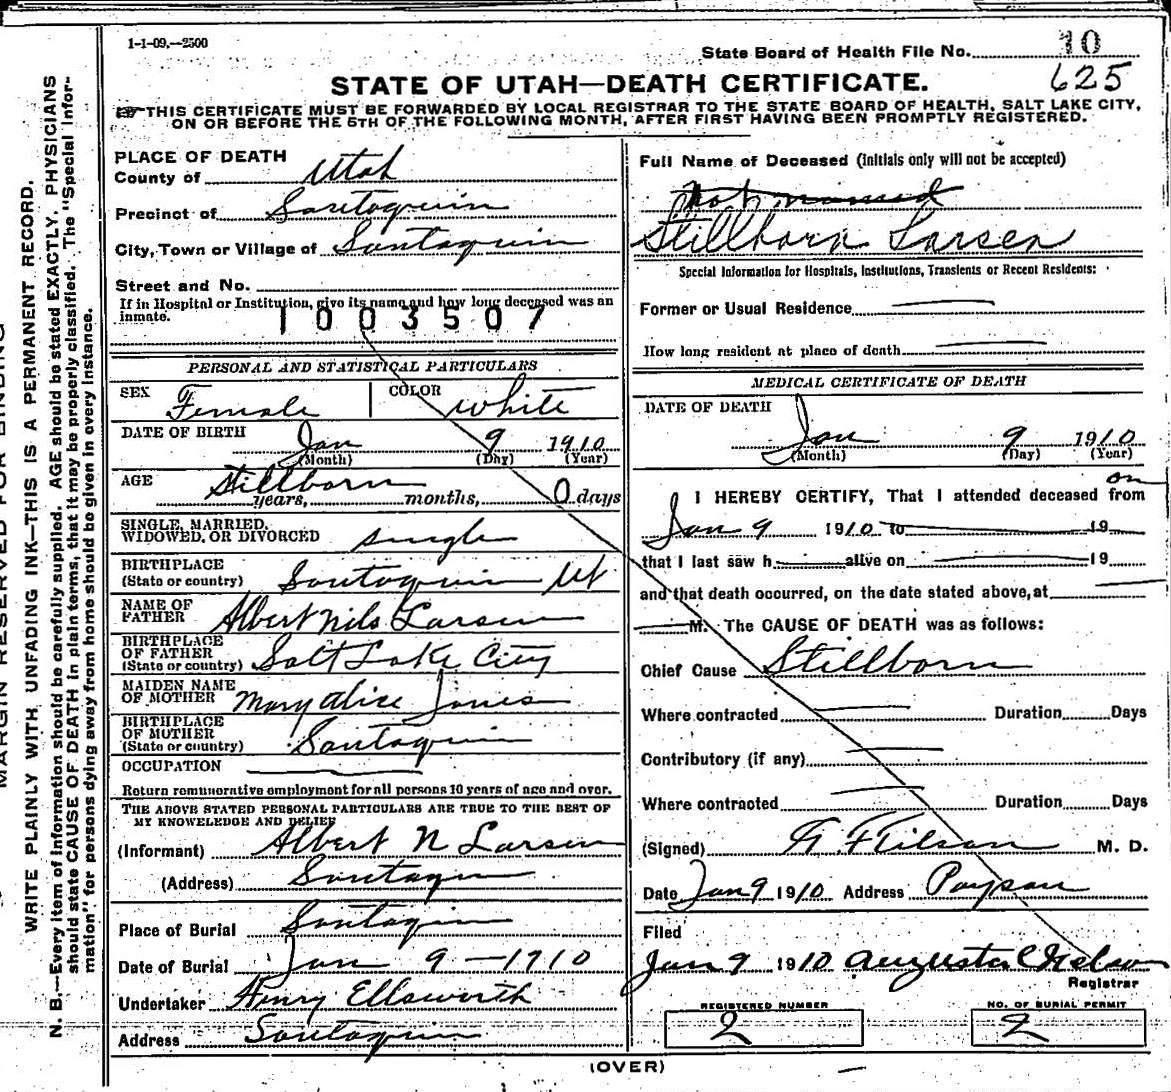 1-1-09.—2500
State Board of Health File No. 10
625
STATE OF UTAH—DEATH CERTIFICATE.
THIS CERTIFICATE MUST BE FORWARDED BY LOCAL REGISTRAR TO THE STATE BOARD OF HEALTH, SALT LAKE CITY,
ON OR BEFORE THE 5TH OF THE FOLLOWING MONTH, AFTER FIRST HAVING BEEN PROMPTLY REGISTERED.
MARGIN RESERVED FOR BINDING
WRITE PLAINLY WITH UNFADING INK—THIS IS A PERMANENT RECORD.
N. B.—Every item of information should be carefully supplied. AGE should be stated EXACTLY. PHYSICIANS
should state CAUSE OF DEATH in plain terms, that it may be properly classified. The "Special Infor-
mation" for persons dying away from home should be given in every instance.
PLACE OF DEATH
County of Utah
Precinct of Santaquin
City, Town or Village of Santaquin
Street and No.
If in Hospital or Institution, give its name and how long deceased was an
inmate.
1003507
PERSONAL AND STATISTICAL PARTICULARS
SEX Female COLOR White
DATE OF BIRTH Jan 9 1910
(Month) (Day) (Year)
AGE Stillborn
years, months, 0 days
SINGLE, MARRIED,
WIDOWED, OR DIVORCED single
BIRTHPLACE
(State or country) Santaquin Ut
NAME OF
FATHER Albert Nils Larsen
BIRTHPLACE
OF FATHER
(State or country) Salt Lake City
MAIDEN NAME
OF MOTHER Mary Alice Jones
BIRTHPLACE
OF MOTHER
(State or country) Santaquin
OCCUPATION
Return remunerative employment for all persons 10 years of age and over.
THE ABOVE STATED PERSONAL PARTICULARS ARE TRUE TO THE BEST OF
MY KNOWLEDGE AND BELIEF
(Informant) Albert N Larsen
(Address) Santaquin
Place of Burial Santaquin
Date of Burial Jan 9 - 1910
Undertaker Henry Ellsworth
Address Santaquin
Full Name of Deceased (Initials only will not be accepted)
Not named
Stillborn Larsen
Special Information for Hospitals, Institutions, Transients or Recent Residents:
Former or Usual Residence
How long resident at place of death
MEDICAL CERTIFICATE OF DEATH
DATE OF DEATH
Jan 9 1910
(Month) (Day) (Year)
on
I HEREBY CERTIFY, That I attended deceased from
Jan 9 1910 to 19
that I last saw h alive on 19
and that death occurred, on the date stated above, at
M. The CAUSE OF DEATH was as follows:
Chief Cause Stillborn
Where contracted Duration Days
Contributory (if any)
Where contracted Duration Days
(Signed) M. D.
Date Jan 9 1910 Address Payson
Filed
Jan 9 1910 Augusta C Nelson
Registrar
REGISTERED NUMBER
2
NO. OF BURIAL PERMIT
2
(OVER)